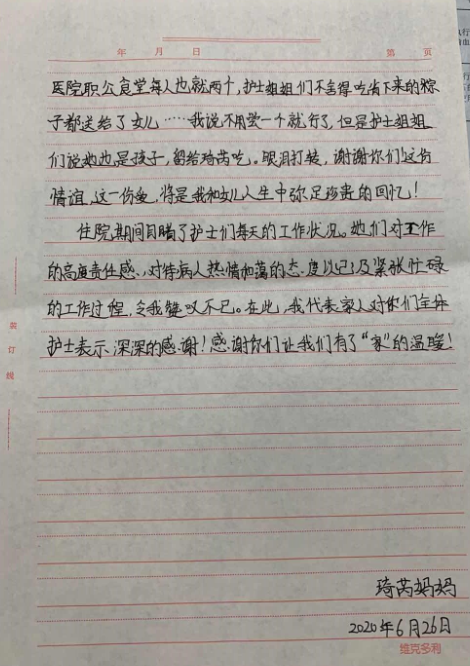 年 月 日 第 页
医院职公食堂每人也就两个，护士姐姐们不舍得吃省下来的粽
子都送给了女儿……我说不用尝一个就行了，但是护士姐姐
们说她也是孩子，留给琦芮吃。眼泪打转，谢谢你们！这份
情谊，这一份爱，将是我和女儿人生中弥足珍贵的回忆！
住院期间目睹了护士们每天的工作状况。她们对工作
的高度责任感、对待病人热情和蔼的态度以已及紧张忙碌
的工作过程，令我赞叹不已。在此，我代表家人对你们全体
护士表示深深的感谢！感谢你们让我们有了“家”的温暖！
装订线
琦芮妈妈
2020年6月26日
维克多利